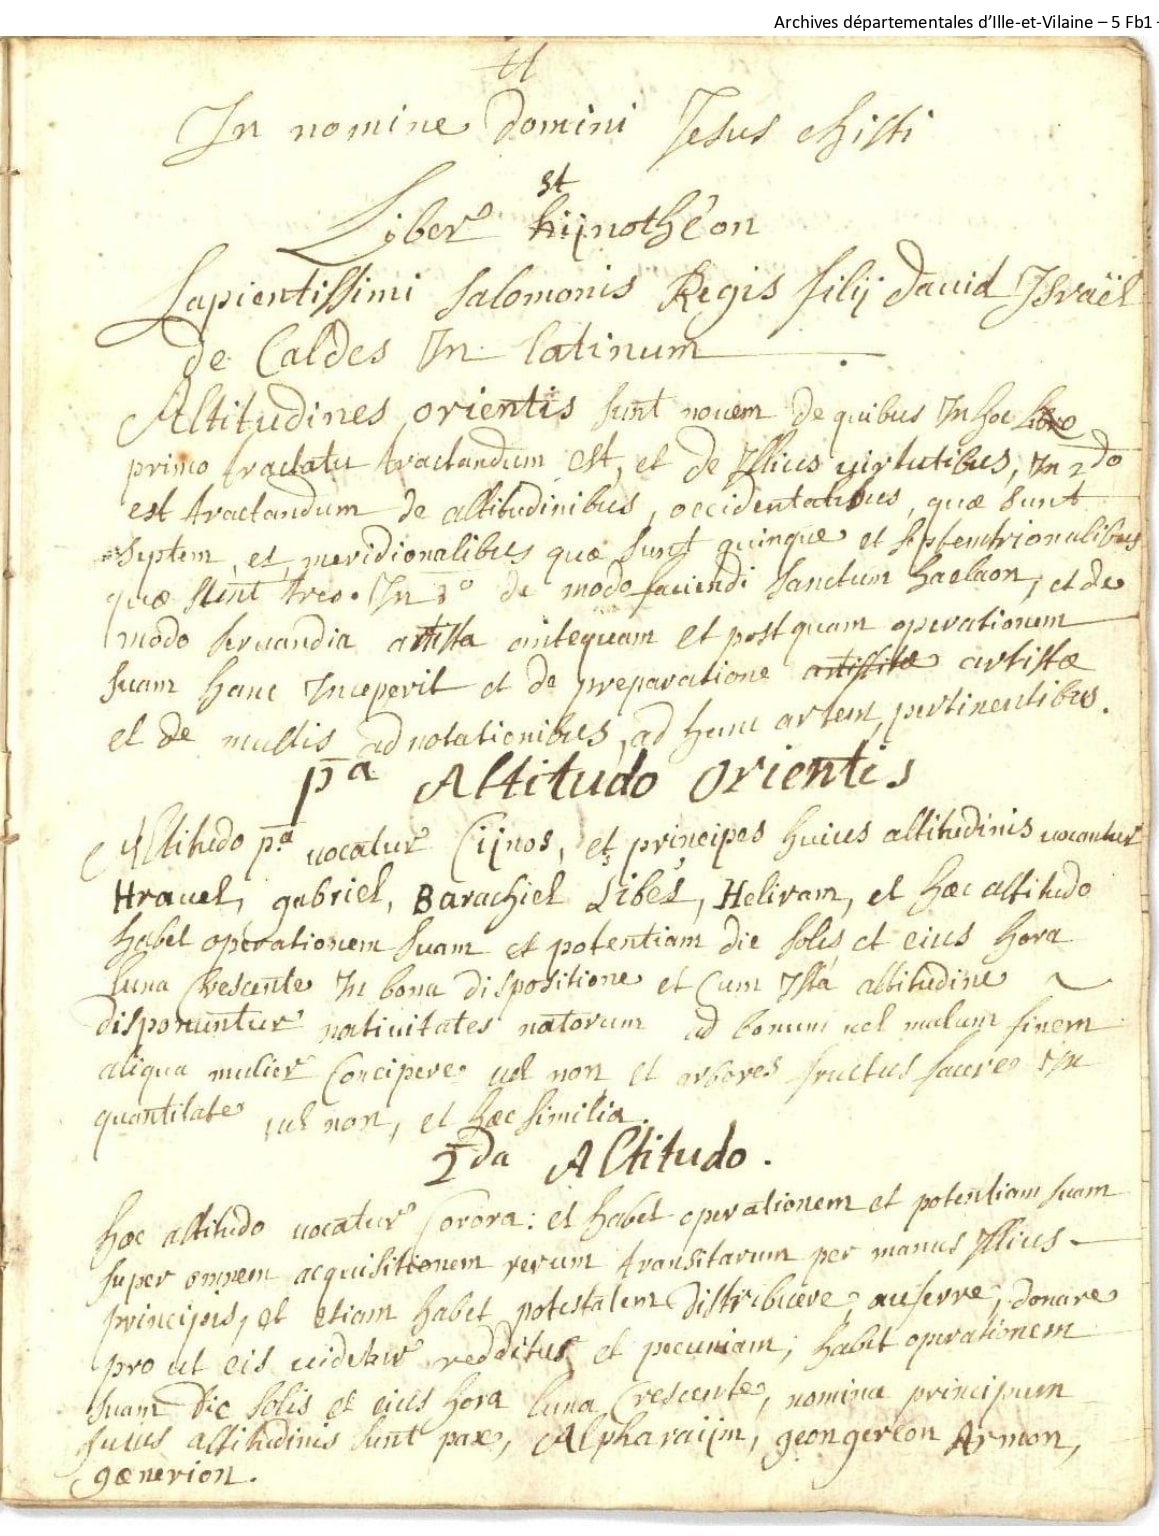 Archives départementales d'Ille-et-Vilaine – 5 Fb1 -
In nomine domini Jesus chisti
st
Liber hijnothéon
Sapientissimi salomonis Regis filij dauid Israël
de Caldes In latinum
Altitudines orientis sunt nouem de quibus In hoc libro
primo tractatu tractandum est, et de Illius uirtutibus, In 2do
est tractandum de altitudinibus, occidentatibus, quæ sunt
septem, et, meridionalibus quæ sunt quinque et septemtrionalibus
quæ sunt tres. In 3o de modo faciendi sanctum haelaon, et de
modo seruandia artista antequam et postquam operationem
suam hanc Inceperit et de preparatione artistæ
et de multis adnotationibus, ad hanc artem, pertinentibus.
pa Altitudo orientis
Altitudo pa uocatur Cijnos, et principes huius altitudinis uocantur
Hrauel, gabriel, Barachiel Libes, Heliram, et hæc altitudo
habet operationem suam et potentiam die solis et eius hora
luna Crescente In bona dispositione et Cum Ista altitudine
disponuntur natiuitates natorum ad bonum uel malum finem
aliqua mulier Concipere uel non et arbores fructus facere In
quantitate uel non, et hæc similia.
2da Altitudo.
hæc altitudo uocatur Corora: et habet operationem et potentiam suam
super omnem acquisitionem rerum transitarum per manus Illius
principis, et etiam habet potestatem distribuere, auferre, donare
pro ut eis uidetur redditus et pecuniam; habet operationem
suam die solis et eius hora luna Crescente, nomina principum
huius altitudinis sunt pax, Alpharaijm, geongereon Armon,
gænerion.